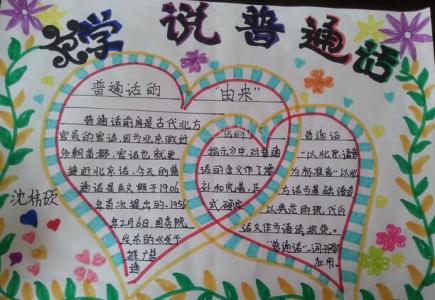 学说普通话
普通话的"由来"
普通话前身是古代北方
官员的官话,因为北京做过
多朝首都,官话也就更
接近北京话,今天的普
通话是朱文熊于1906
年首次提出的,1956
年2月6日国务院
发布的《关于
推广普
通
话的
指示》中,对普通
话的含义作了增
补和完善,正
式确定
普通话
"以北京语音
为标准音,以北
方话为基础语言
以典范的现代白
话文作为语法规范。
"普通话"一词开始
应用。
沈桔硕